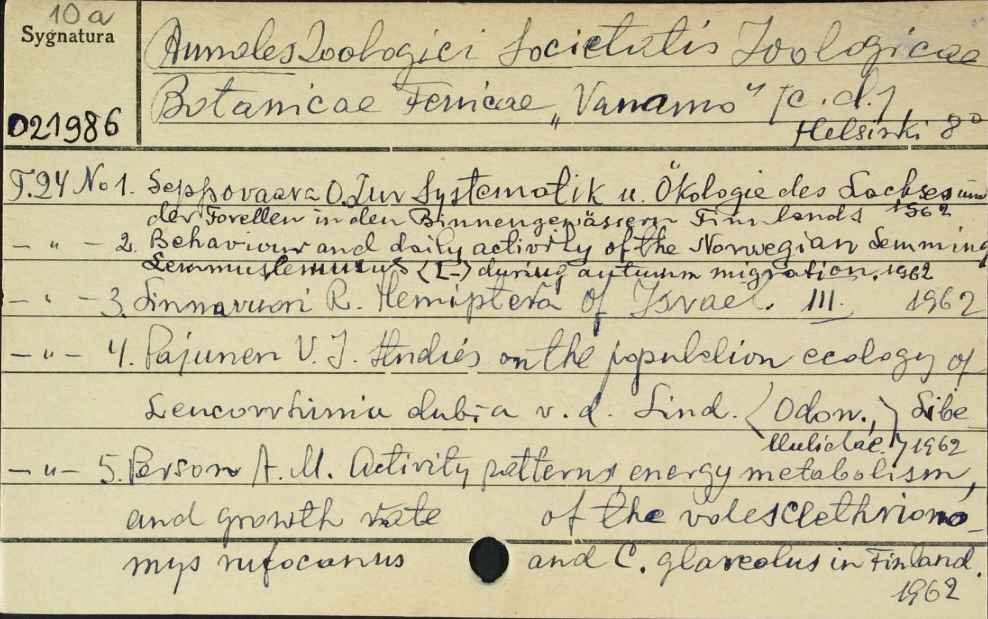 10a
Sygnatura
021986
Annales Zoologici Societatis Zoologicae
Botanicae Fenicae „Vanamo" [c.d.]
Helsinki 8°
T.24 No 1. Seppovaara O. Zur Systematik u. Ökologie des Lachses und
der Forellen in den Binnengewässern Finnlands 1962
- " - 2. Behaviour and daily activity of the Norwegian Lemming
Lemmuslemmus (L-) during autumn migration. 1962
- " - 3. Linnavuori R. Hemiptera of Israel. III. 1962
- " - 4. Pajunen V. I. Studies on the population ecology of
Leucorrhinia dubia v. d. Lind. (Odon., Libe
llulidae.) 1962
- " - 5. Person A. M. Activity patterns, energy metabolism,
and growth rate of the voles Clethriono-
mys rufocanus and C. glareolus in Finland.
1962